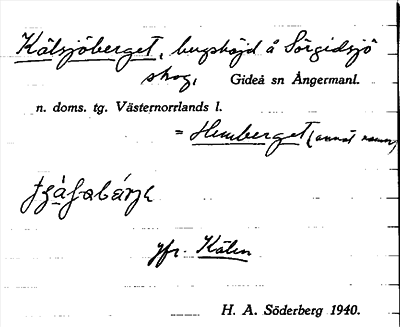 Kälsjöberget, bergshöjd å Sörgidsjö
skog, Gideå sn Ångermanl.
n. doms. tg. Västernorrlands l.
= Hemberget (annat namn)
jfr. Kälen
H. A. Söderberg 1940.